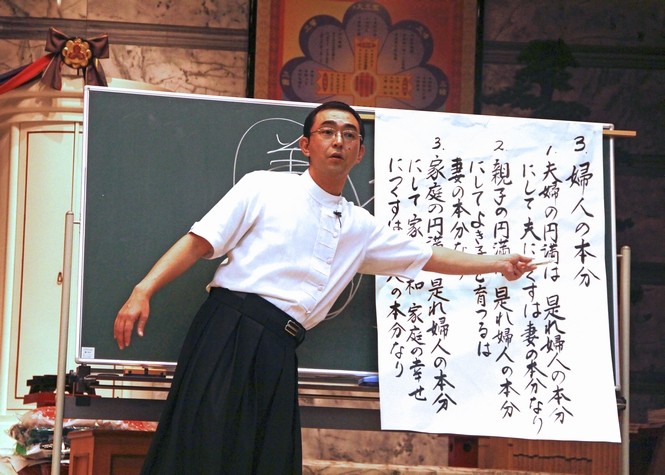 3. 婦人の本分
1. 夫婦の円満は 是れ婦人の本分
にして 夫に くすは妻の本分なり
2. 親子の円満 是れ婦人の本分
にしてよき子を育つるは
妻の本分な
3. 家庭の円満 是れ婦人の本分
にして 家 和 家庭の幸せ
につくすは 人の本分なり